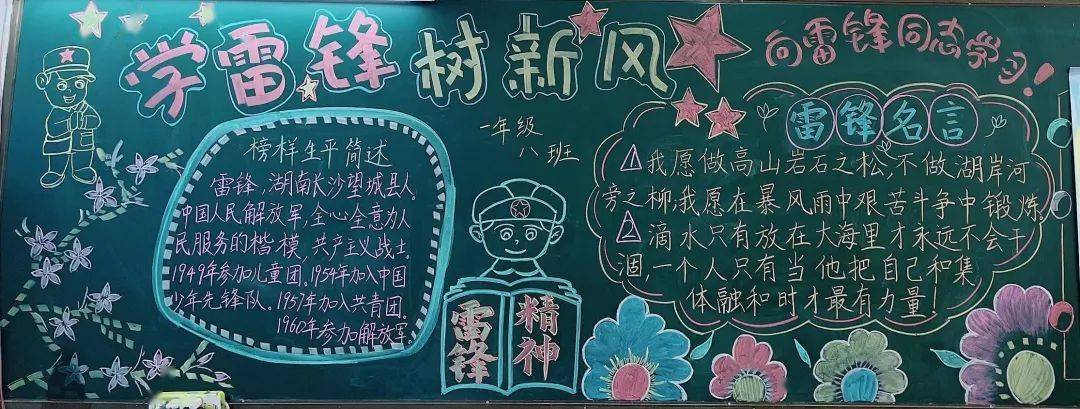 学雷锋树新风
向雷锋同志学习!
一年级
八班
榜样生平简述
雷锋,湖南长沙望城县人。
中国人民解放军,全心全意为人
民服务的楷模,共产主义战士。
1949年参加儿童团。1954年加入中国
少年先锋队。1957年加入共青团。
1960年参加解放军
雷锋
精神
雷锋名言
我愿做高山岩石之松,不做湖岸河
旁之柳,我愿在暴风雨中艰苦斗争中锻炼。
滴水只有放在大海里才永远不会干
涸,一个人只有当他把自己和集
体融和时才最有力量!